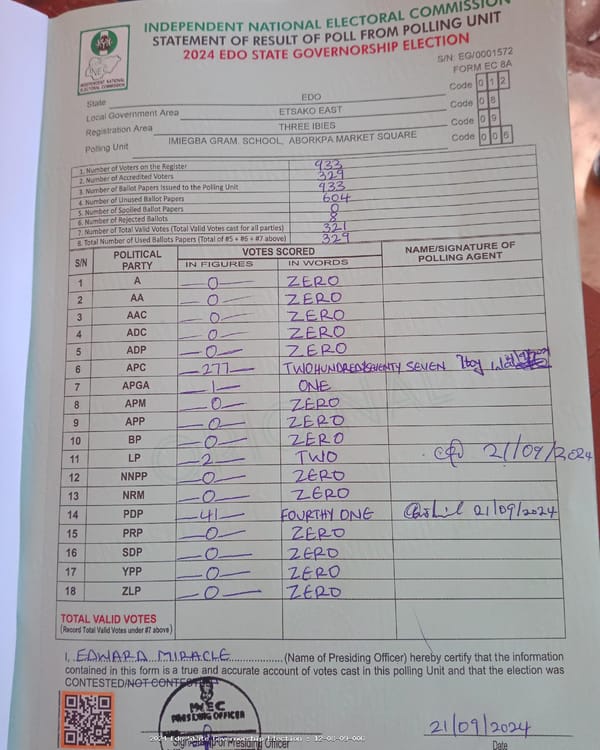 INDEPENDENT NATIONAL ELECTORAL COMMISSION
STATEMENT OF RESULT OF POLL FROM POLLING UNIT
2024 EDO STATE GOVERNORSHIP ELECTION
S/N: EG/0001572
FORM EC 8A
INEC
INDEPENDENT NATIONAL
ELECTORAL COMMISSION
State EDO Code 012
Local Government Area ETSAKO EAST Code 08
Registration Area THREE IBIES Code 09
Polling Unit IMIEGBA GRAM. SCHOOL, ABORKPA MARKET SQUARE Code 006
1. Number of Voters on the Register 933
2. Number of Accredited Voters 329
3. Number of Ballot Papers Issued to the Polling Unit 933
4. Number of Unused Ballot Papers 604
5. Number of Spoiled Ballot Papers 0
6. Number of Rejected Ballots 8
7. Number of Total Valid Votes (Total Valid Votes cast for all parties) 321
8. Total Number of Used Ballots Papers (Total of #5 + #6 + #7 above) 329
S/N POLITICAL PARTY VOTES SCORED NAME/SIGNATURE OF POLLING AGENT
IN FIGURES IN WORDS
1 A 0 ZERO
2 AA 0 ZERO
3 AAC 0 ZERO
4 ADC 0 ZERO
5 ADP 0 ZERO
6 APC 277 TWO HUNDRED SEVENTY SEVEN
7 APGA 1 ONE
8 APM 0 ZERO
9 APP 0 ZERO
10 BP 0 ZERO
11 LP 2 TWO 21/09/2024
12 NNPP 0 ZERO
13 NRM 0 ZERO
14 PDP 41 FOURTHY ONE 21/09/2024
15 PRP 0 ZERO
16 SDP 0 ZERO
17 YPP 0 ZERO
18 ZLP 0 ZERO
TOTAL VALID VOTES
(Record Total Valid Votes under #7 above)
I, EDWARD MIRACLE (Name of Presiding Officer) hereby certify that the information
contained in this form is a true and accurate account of votes cast in this polling Unit and that the election was
CONTESTED/NOT CONTESTED
INEC
PRESIDING OFFICER
21/09/2024
2024 Edo State Governorship Election
Presiding Officer Date